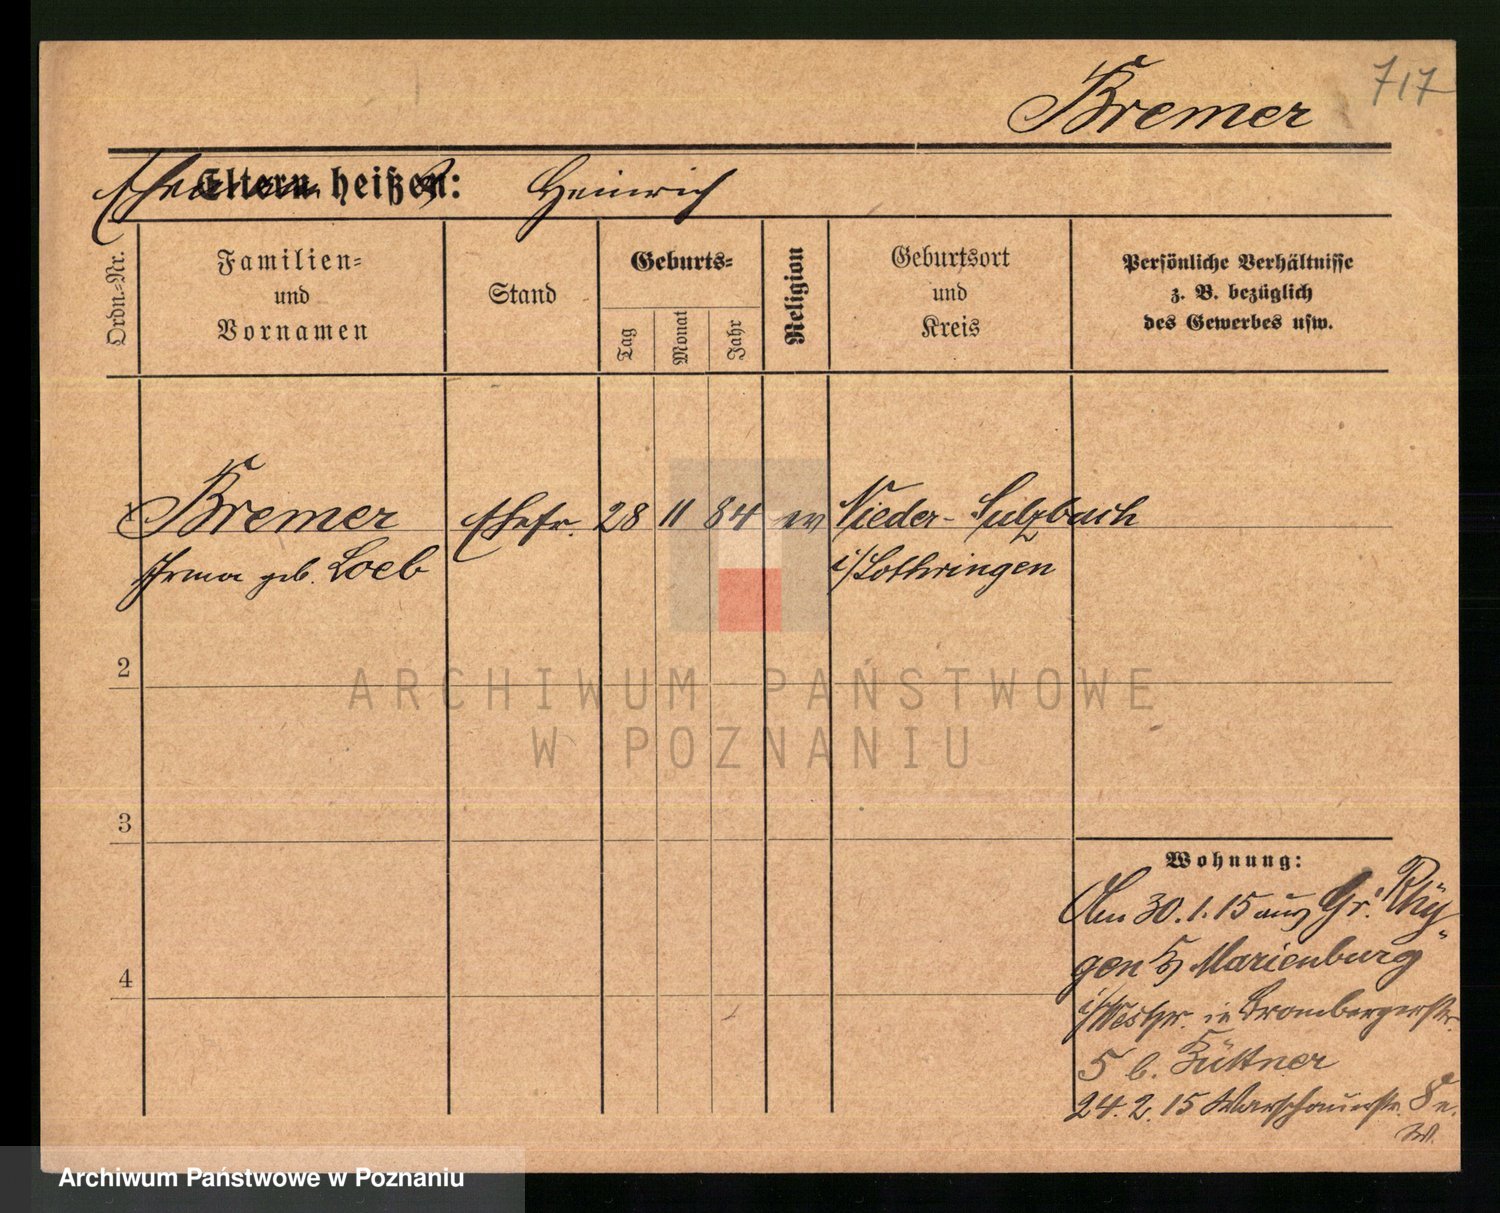 717
Bremer
Eltern heißen: Heinrich
Ordn.-Nr.
Familien-
und
Vornamen
Stand
Geburts-
Tag
Monat
Jahr
Religion
Geburtsort
und
Kreis
Persönliche Verhältnisse
z. B. bezüglich
des Gewerbes usw.
1 Bremer Ehefr. 28 11 84 ev Nieder-Sulzbach
Irma geb. Loeb i/Lothringen
2
ARCHIWUM PAŃSTWOWE
W POZNANIU
3
Wohnung:
Am 30.1.15 aus Gr.
gen Marienburg
i/Westpr. in Brombergerstr.
5 b. Büttner
24.2.15 Warschauerstr. 8
4
Archiwum Państwowe w Poznaniu